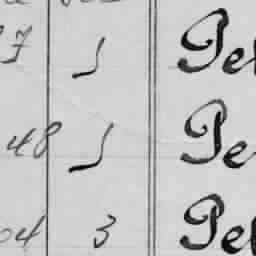 7 1 Pe
48 1 Pe
04 3 Pe